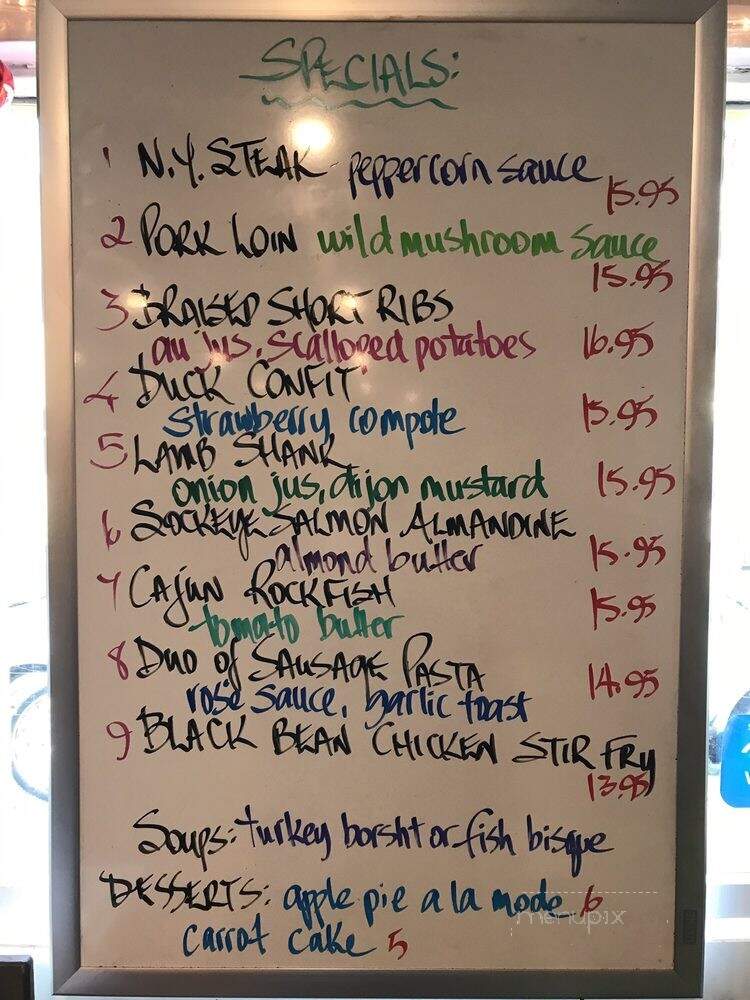 SPECIALS:
1 N.Y. STEAK - peppercorn sauce
15.95
2 PORK LOIN wild mushroom sauce
15.95
3 BRAISED SHORT RIBS
au jus, scalloped potatoes 16.95
4 DUCK CONFIT
strawberry compote 15.95
5 LAMB SHANK
onion jus, dijon mustard 15.95
6 SOCKEYE SALMON ALMANDINE
almond butter 15.95
7 CAJUN ROCKFISH
tomato butter 15.95
8 DUO of SAUSAGE PASTA
rosé sauce, garlic toast 14.95
9 BLACK BEAN CHICKEN STIR FRY
13.95
Soups: turkey borsht or fish bisque
DESSERTS: apple pie a la mode 6
carrot cake 5
menupix